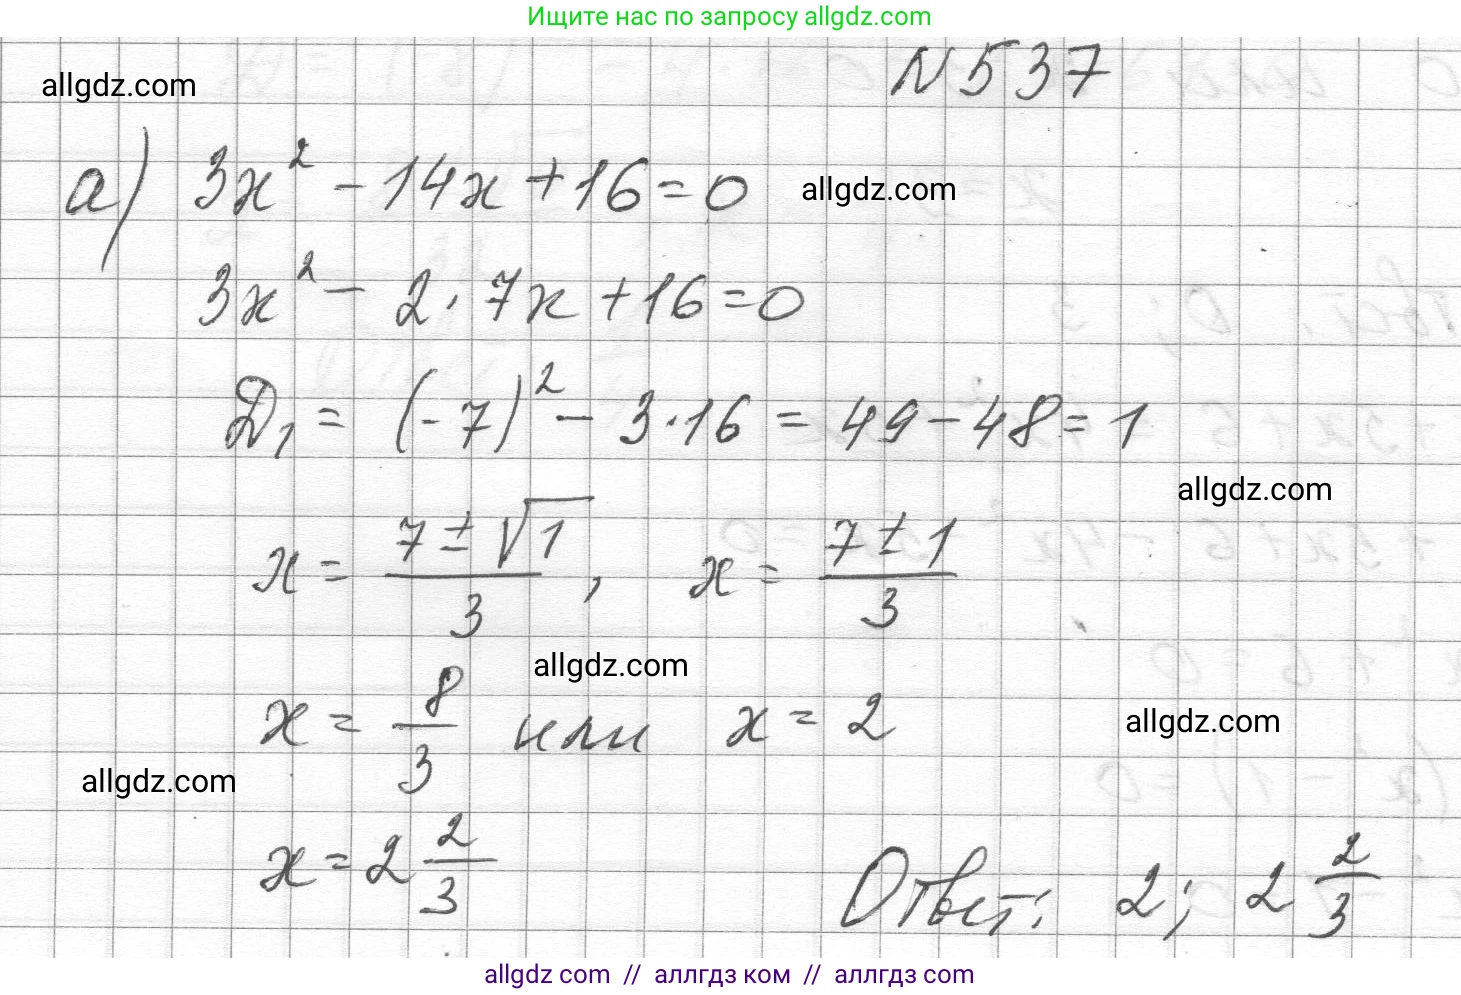 Ищите нас по запросу allgdz.com
allgdz.com
N 537
а) 3x² - 14x + 16 = 0
allgdz.com
3x² - 2 · 7x + 16 = 0
Д₁ = (-7)² - 3 · 16 = 49 - 48 = 1
allgdz.com
x = (7 ± √1)/3, x = (7 ± 1)/3
allgdz.com
x = 8/3 или x = 2
allgdz.com
allgdz.com
x = 2 2/3
Ответ: 2; 2 2/3
allgdz.com // аллгдз ком // аллгдз com